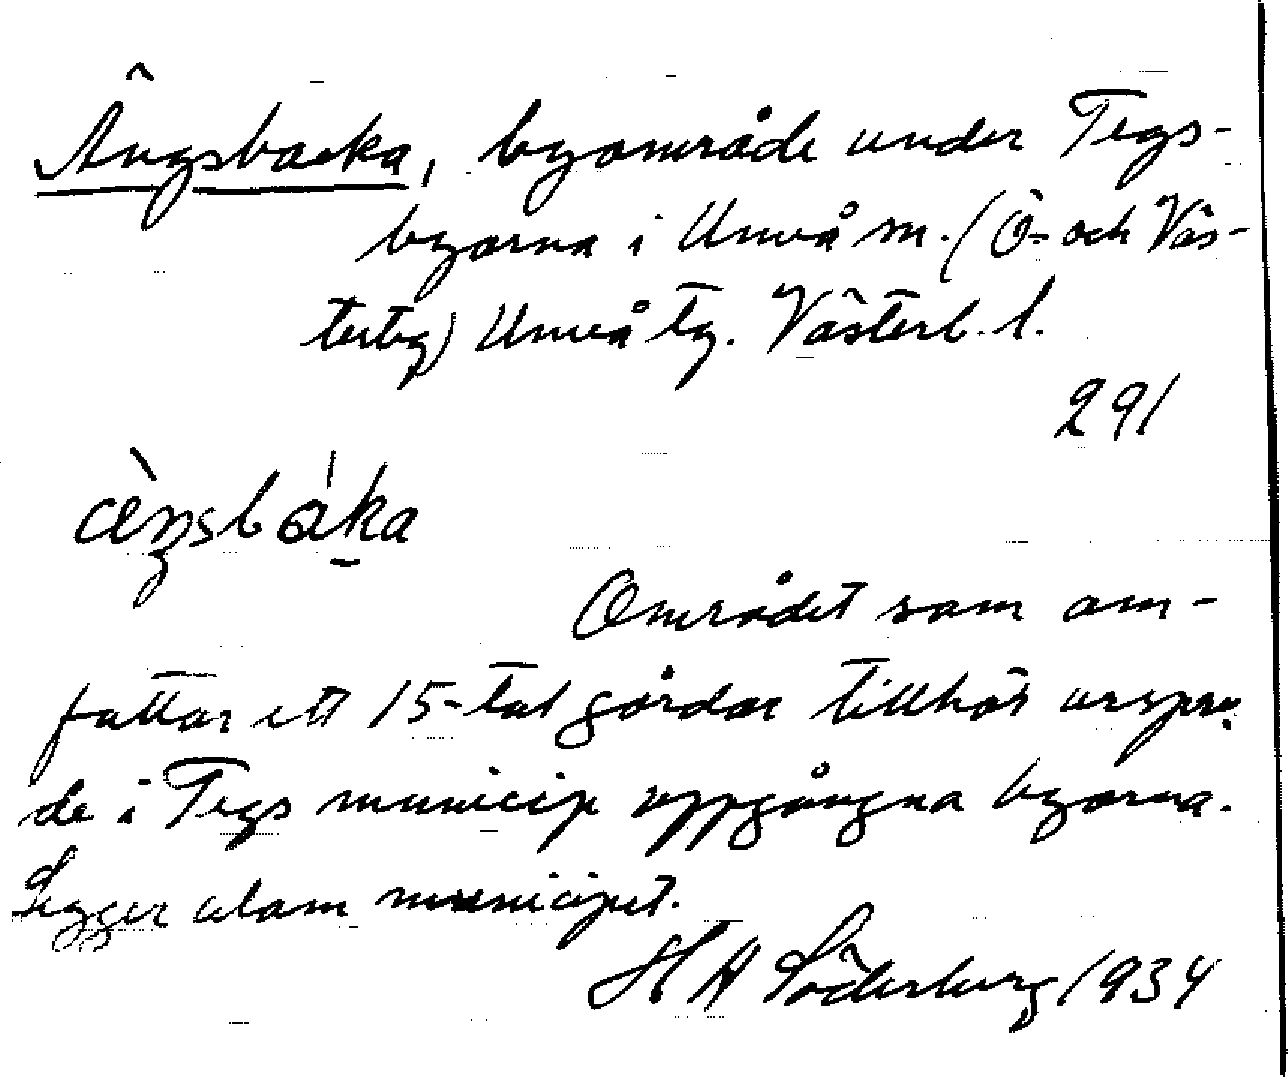 Ängsbacka, byområde under Tegs-
byarna i Umeå sn. (Ö- och Väs-
terteg) Umeå tg. Västerb. l.
291
æ̀ŋsbàka
Området som om-
fattar ett 15-tal gårdar tillhör
de i Tegs municip uppgångna byarna.
Ligger utom municipet.
H A Söderberg 1934